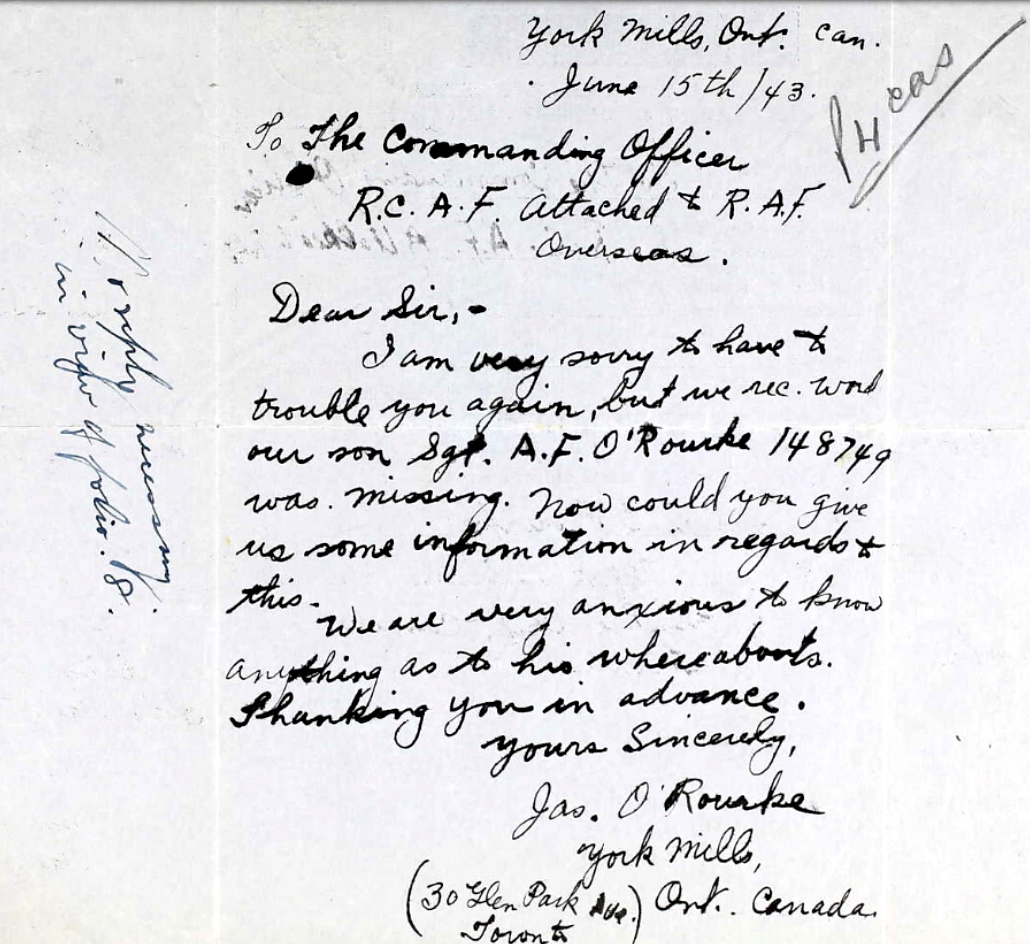 York Mills, Ont. Can.
June 15th/43.
To The Commanding Officer
R.C.A.F. Attached to R.A.F.
Overseas.
Dear Sir,-
I am very sorry to have to
trouble you again, but we rec. word
our son Sgt. A.F. O'Rourke 148749
was. missing. Now could you give
us some information in regards to
this.
We are very anxious to know
anything as to his whereabouts.
Thanking you in advance.
Yours Sincerely,
Jas. O'Rourke
York Mills,
(30 Glen Park Ave.) Ont.. Canada.
Toronto
No reply necessary
in view of folio. 18.
cas